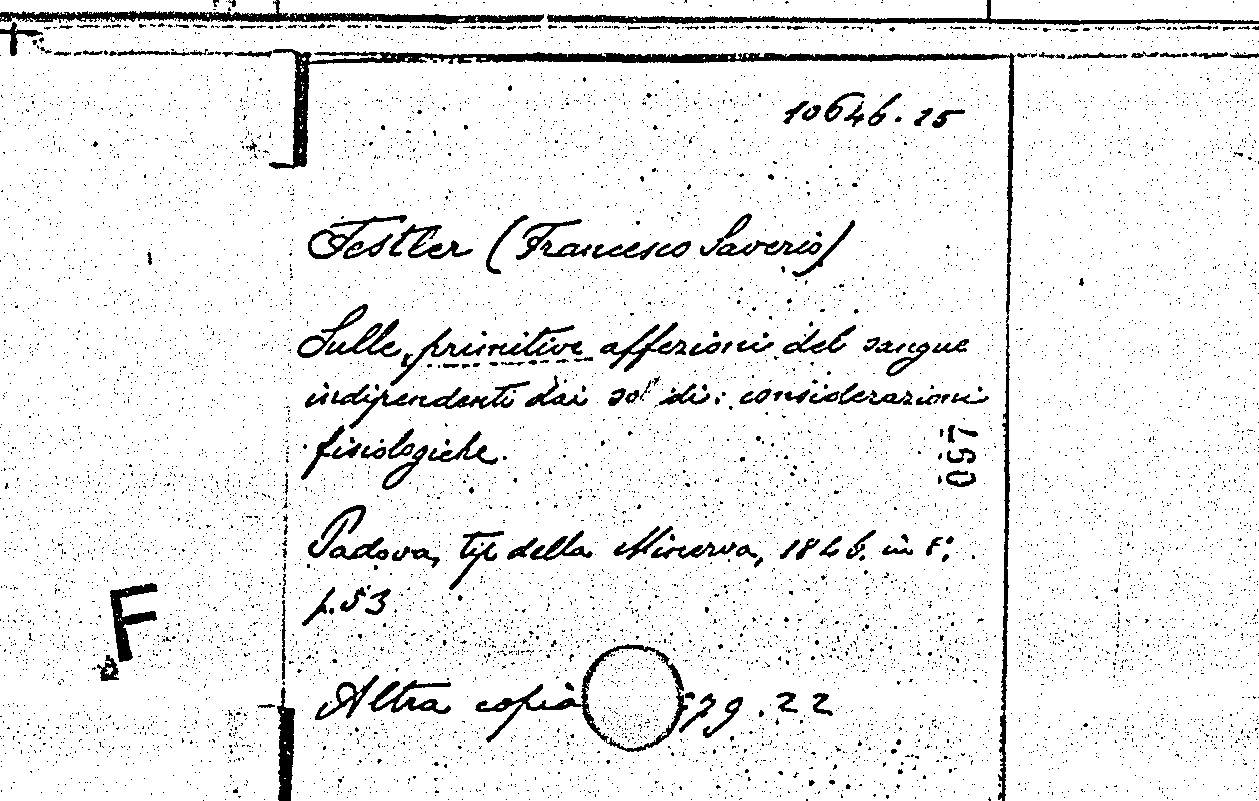 10646.15
Festler (Francesco Saverio)
Sulle primitive affezioni del sangue
indipendenti dai solidi: considerazioni
fisiologiche.
Padova, tip della Minerva, 1846. in 8°.
p. 53
Altra copia 79.22
057
F